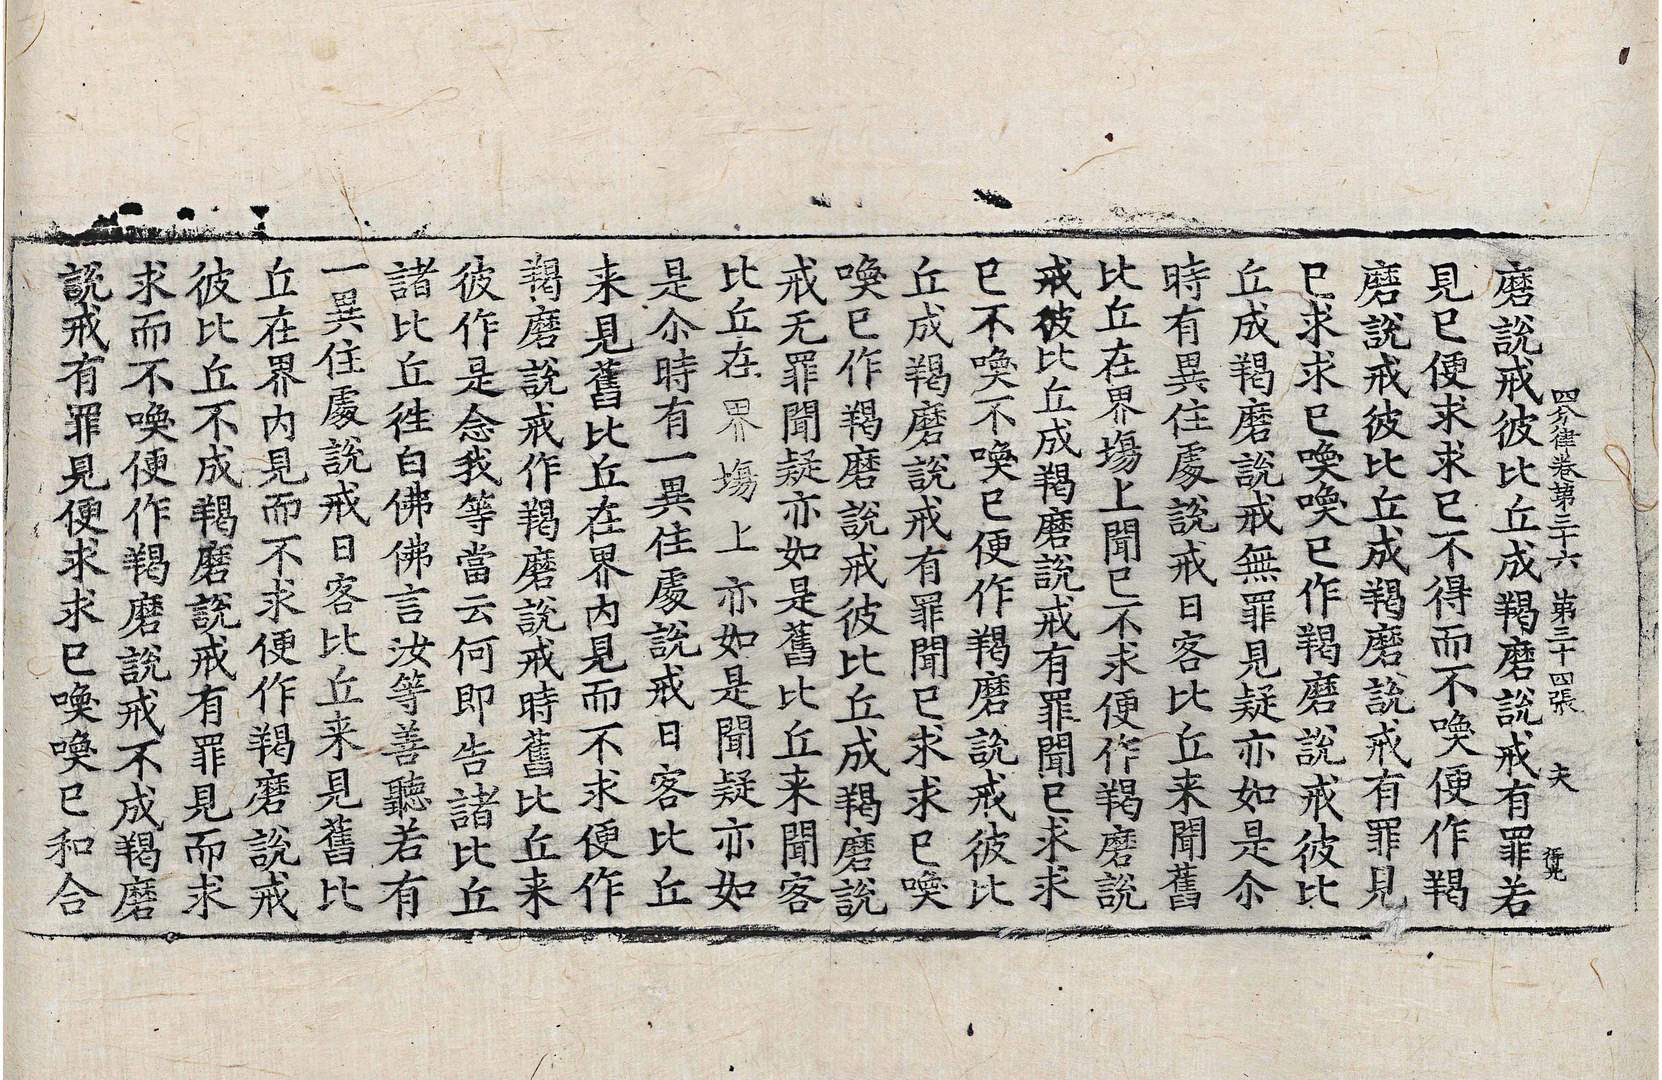 四分律卷第三十六 第三十四張 夫
磨說戒彼比丘成羯磨說戒有罪若
見已便求求已不得而不喚便作羯
磨說戒彼比丘成羯磨說戒有罪見
已求求已喚喚已作羯磨說戒彼比
丘成羯磨說戒無罪見疑亦如是尒
時有異住處說戒日客比丘来聞舊
比丘在界塲上聞已不求便作羯磨說
戒彼比丘成羯磨說戒有罪聞已求求
已不喚不喚已便作羯磨說戒彼比
丘成羯磨說戒有罪聞已求求已喚
喚已作羯磨說戒彼比丘成羯磨說
戒无罪聞疑亦如是舊比丘来聞客
比丘在界塲上亦如是聞疑亦如
是尒時有一異住處說戒日客比丘
来見舊比丘在界内見而不求便作
羯磨說戒作羯磨說戒時舊比丘来
彼作是念我等當云何即告諸比丘
諸比丘徃白佛佛言汝等善聽若有
一異住處說戒日客比丘来見舊比
丘在界内見而不求便作羯磨說戒
彼比丘不成羯磨說戒有罪見而求
求而不喚便作羯磨說戒不成羯磨
說戒有罪見便求求已喚喚已和合